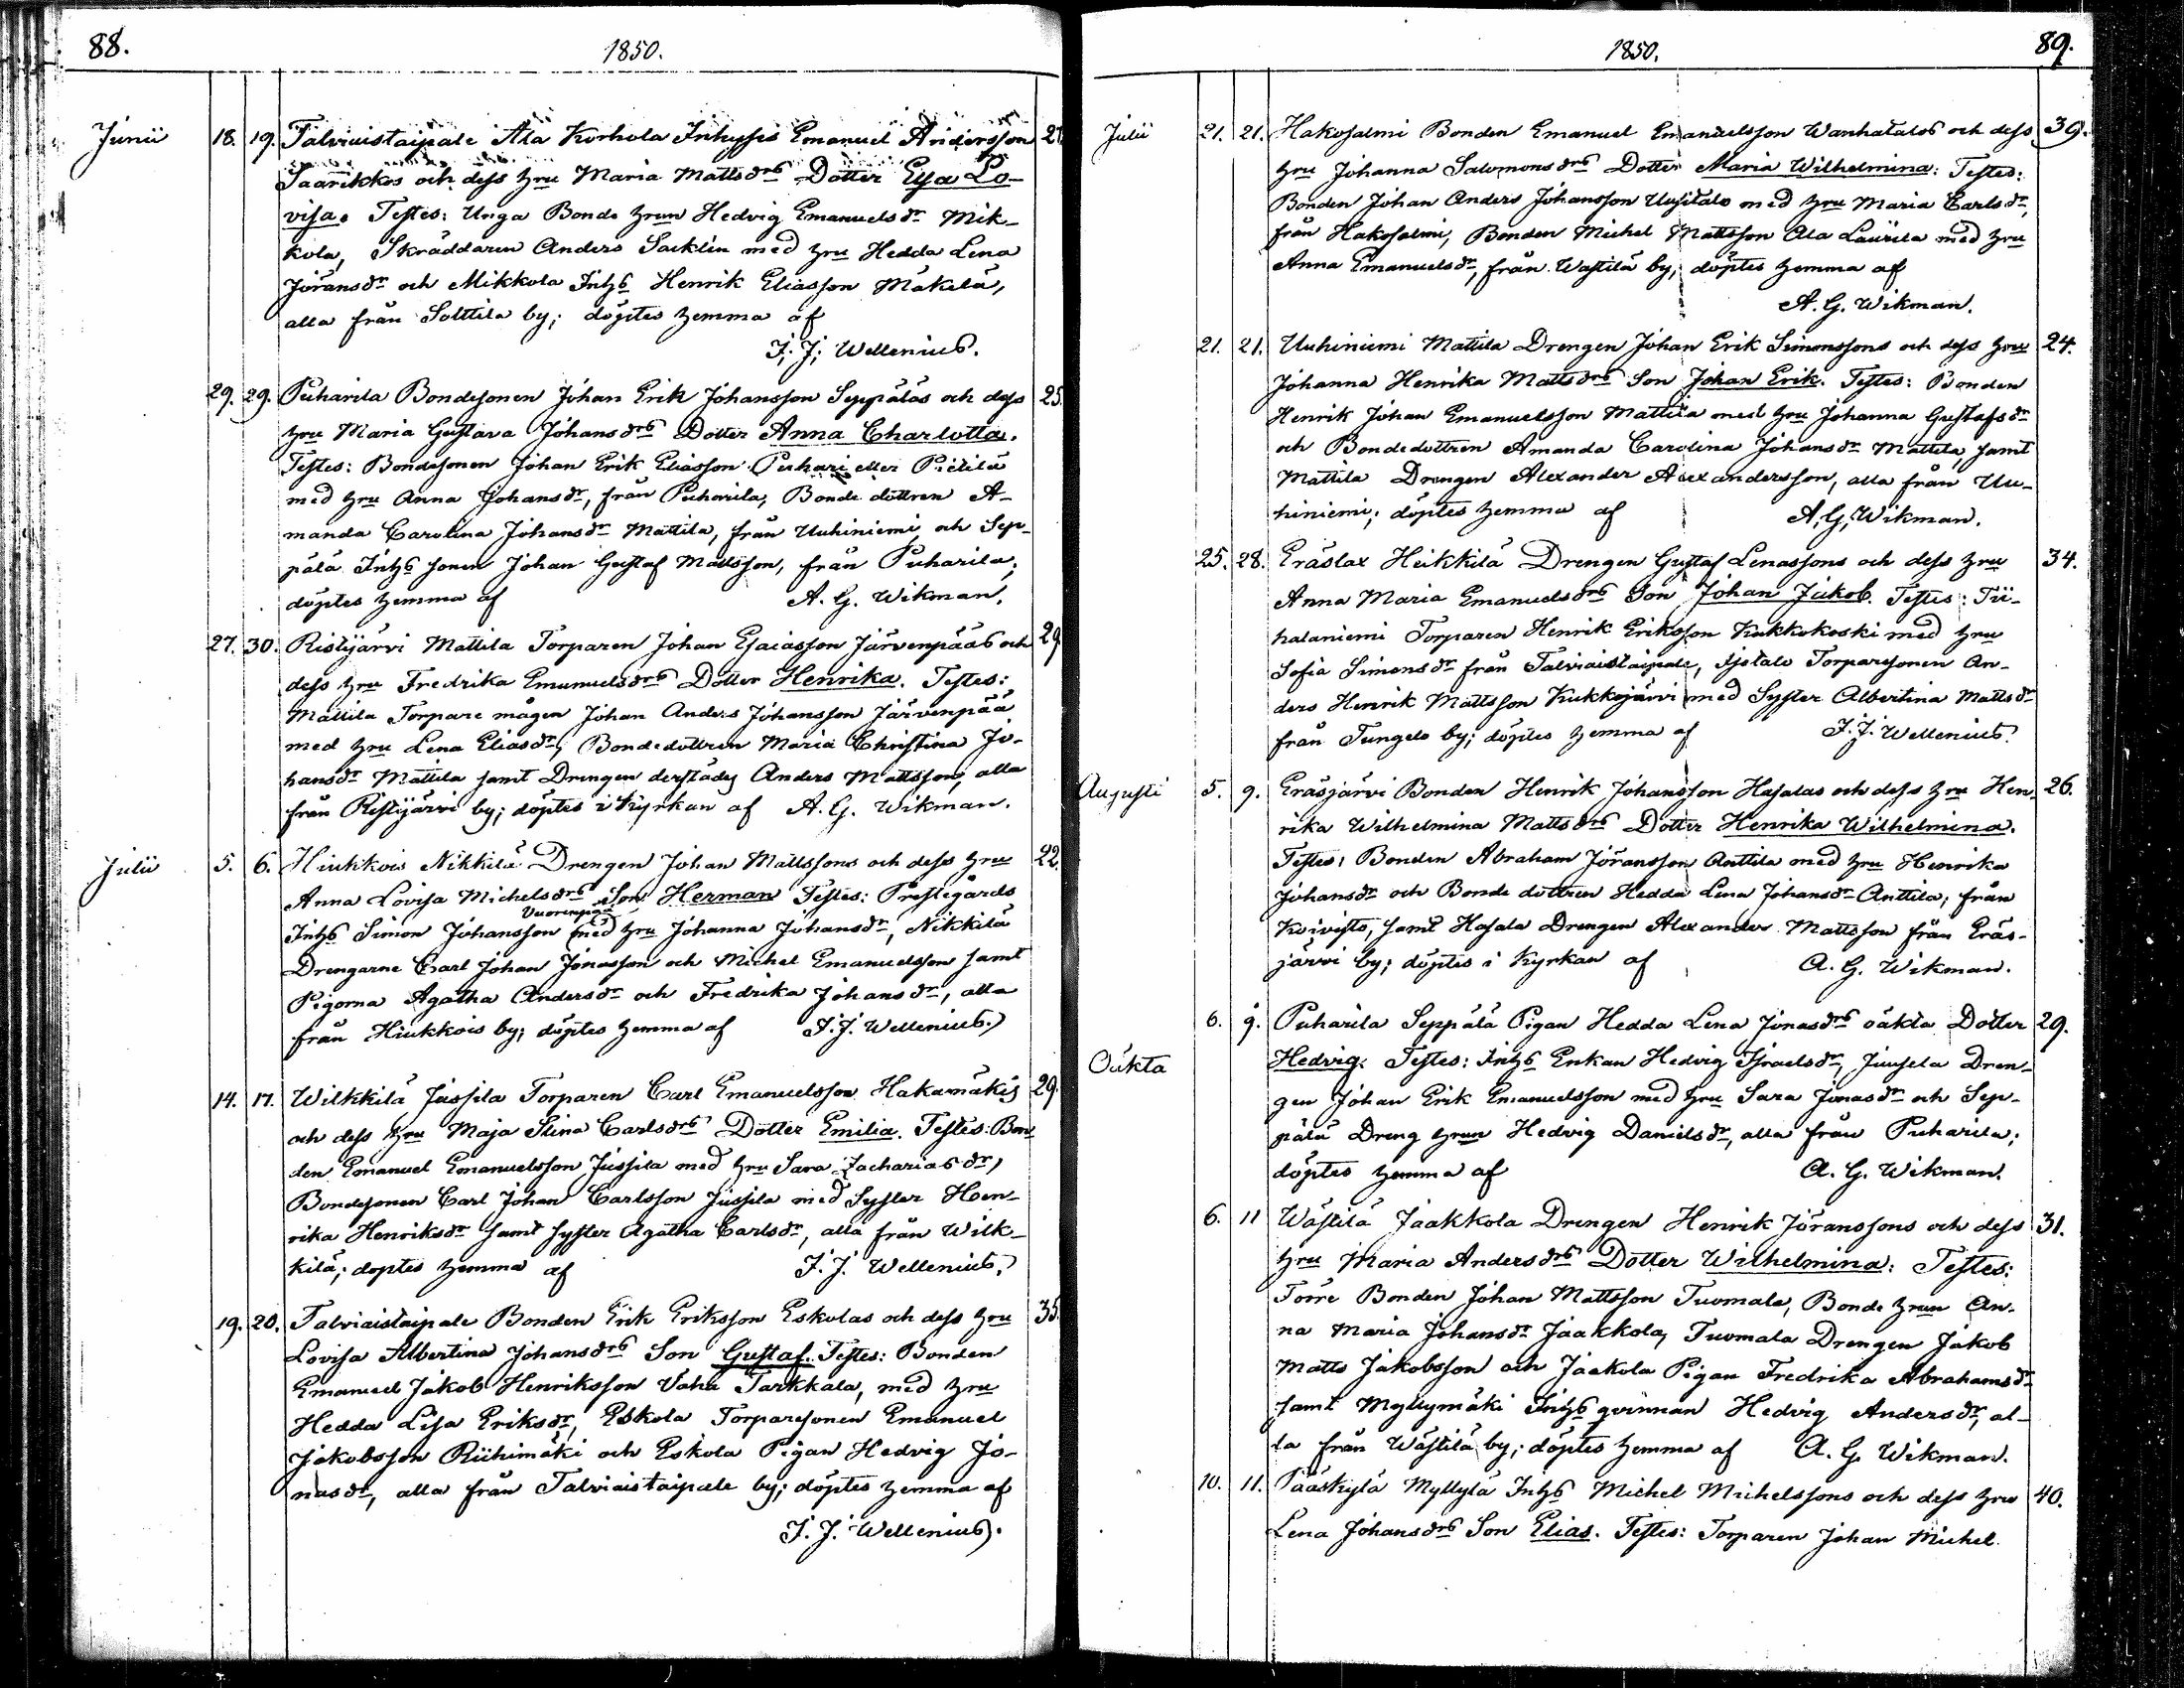 88.
1850.
Junii 18. 19. Talviaistaipale Ala Korhola Inhyses Emanuel Andersson 27
Saarikkos och dess hru Maria Mattsdrs Dotter Eva Lo-
visa. Testes: Unga Bonde hrun Hedvig Emanuelsdr Mik-
kola, Skräddaren Anders Sacklin med hru Hedda Lena
Jöransdr och Mikkola Inhs Henrik Eliasson Mäkelä,
alla från Solttila by; döptes hemma af
J. J. Wellenius.
29. 29. Puharila Bondesonen Johan Erik Johansson Seppäläs och dess 25.
hru Maria Gustava Johansdrs Dotter Anna Charlotta.
Testes: Bondesonen Johan Erik Eliasson Puhari eller Pietilä
med hru Anna Johansdr, från Puharila, Bonde dottren A-
manda Carolina Johansdr Mattila, från Uuhiniemi, och Sep-
pälä Inhs sonen Johan Gustaf Mattsson, från Puharila;
döptes hemma af A. G. Wikman.
27. 30. Ristijärvi Mattila Torparen Johan Esaiasson Järvenpääs och 29
dess hru Fredrika Emanuelsdrs Dotter Henrika. Testes:
Mattila Torpare mågen Johan Anders Johansson Järvenpää
med hru Lena Eliasdr, Bondedottren Maria Christina Jo-
hansdr Mattila samt Drengen derstädes Anders Mattsson, alla
från Ristijärvi by; döptes i Kyrkan af A. G. Wikman.
Julii 5. 6. Hiukkois Nikkilä Drengen Johan Mattssons och dess hru 22.
Anna Lovisa Michelsdrs Son Herman Testes: Prestegårds
Vuorenpää
Inhs Simon Johansson med hru Johanna Johansdr, Nikkilä
Drengarne Carl Johan Jonasson och Michel Emanuelsson samt
Pigorna Agatha Andersdr och Fredrika Johansdr, alla
från Hiukkois by; döptes hemma af J. J. Wellenius.
14. 17. Wilkkilä Jussila Torparen Carl Emanuelsson Hakamäkis 29.
och dess hru Maja Stina Carlsdrs Dotter Emilia. Testes: Bon-
den Emanuel Emanuelsson Jussila med hru Sara Zachariasdr,
Bondesonen Carl Johan Carlsson Jussila med Syster Hen-
rika Henriksdr samt syster Agatha Carlsdr, alla från Wilk-
kilä; döptes hemma af J. J. Wellenius.
19. 20. Talviaistaipale Bonden Erik Eriksson Eskolas och dess hru 35.
Lovisa Albertina Johansdrs Son Gustaf. Testes: Bonden
Emanuel Jakob Henriksson Vaha Tarkkala, med hru
Hedda Lisa Eriksdr, Eskola Torparesonen Emanuel
Jakobsson Riihimäki och Eskola Pigan Hedvig Jo-
nasdr, alla från Talviaistaipale by; döptes hemma af
J. J. Wellenius.
1850.
89.
Julii 21. 21. Hakosalmi Bonden Emanuel Emanuelsson Wanhatalos och dess 39.
hru Johanna Salomonsdrs Dotter Maria Wilhelmina: Testes:
Bonden Johan Anders Johansson Uusitalo med hru Maria Carlsdr,
från Hakosalmi, Bonden Michel Mattsson Ala Laurila med hru
Anna Emanuelsdr, från Wastilä by; döptes hemma af
A. G. Wikman.
21. 21. Uuhiniemi Mattila Drengen Johan Erik Simonssons och dess hru 24.
Johanna Henrika Mattsdrs Son Johan Erik. Testes: Bonden
Henrik Johan Emanuelsson Mattila med hru Johanna Gustafsdr
och Bondedottren Amanda Carolina Johansdr Mattila, samt
Mattila Drengen Alexander Alexandersson, alla från Uu-
hiniemi; döptes hemma af A. G. Wikman.
25. 28. Eräslax Heikkilä Drengen Gustaf Lenassons och dess hru 34.
Anna Maria Emanuelsdrs Son Johan Jakob. Testes: Tii-
palaniemi Torparen Henrik Eriksson Kukkokoski med hru
Sofia Simonsdr från Talviaistaipale, Isotalo Torparesonen An-
ders Henrik Mattsson Kukkojärvi med Syster Albertina Mattsdr
från Tungelo by; döptes hemma af J. J. Wellenius.
Augusti 5. 9. Eräsjärvi Bonden Henrik Johansson Hasalas och dess hru Hen- 26.
rika Wilhelmina Mattsdrs Dotter Henrika Wilhelmina.
Testes: Bonden Abraham Jöransson Anttila med hru Henrika
Johansdr och Bonde dottren Hedda Lena Johansdr Anttila, från
Koivisto, samt Hasala Drengen Alexander Mattsson från Eräs-
järvi by; döptes i Kyrkan af A. G. Wikman.
6. 9. Puharila Seppälä Pigan Hedda Lena Jonasdrs oäkta Dotter 29.
Oäkta Hedvig. Testes: Inhs Enkan Hedvig Israelsdr, Juusela Dren-
gen Johan Erik Emanuelsson med hru Sara Jonasdr och Sep-
pälä Dreng hrun Hedvig Danielsdr, alla från Puharila;
döptes hemma af A. G. Wikman.
6. 11 Wästilä Jaakkola Drengen Henrik Jöranssons och dess 31.
hru Maria Andersdrs Dotter Wilhelmina: Testes:
Torre Bonden Johan Mattsson Tuomala, Bonde hrun An-
na Maria Johansdr Jaakkola, Tuomala Drengen Jakob
Matts Jakobsson och Jaakola Pigan Fredrika Abrahamsdr
samt Myllymäki Inhs qvinnan Hedvig Andersdr, al-
la från Wästilä by; döptes hemma af A. G. Wikman.
10. 11. Pääskylä Myllylä Inhs Michel Michelssons och dess hru 40.
Lena Johansdrs Son Elias. Testes: Torparen Johan Michel